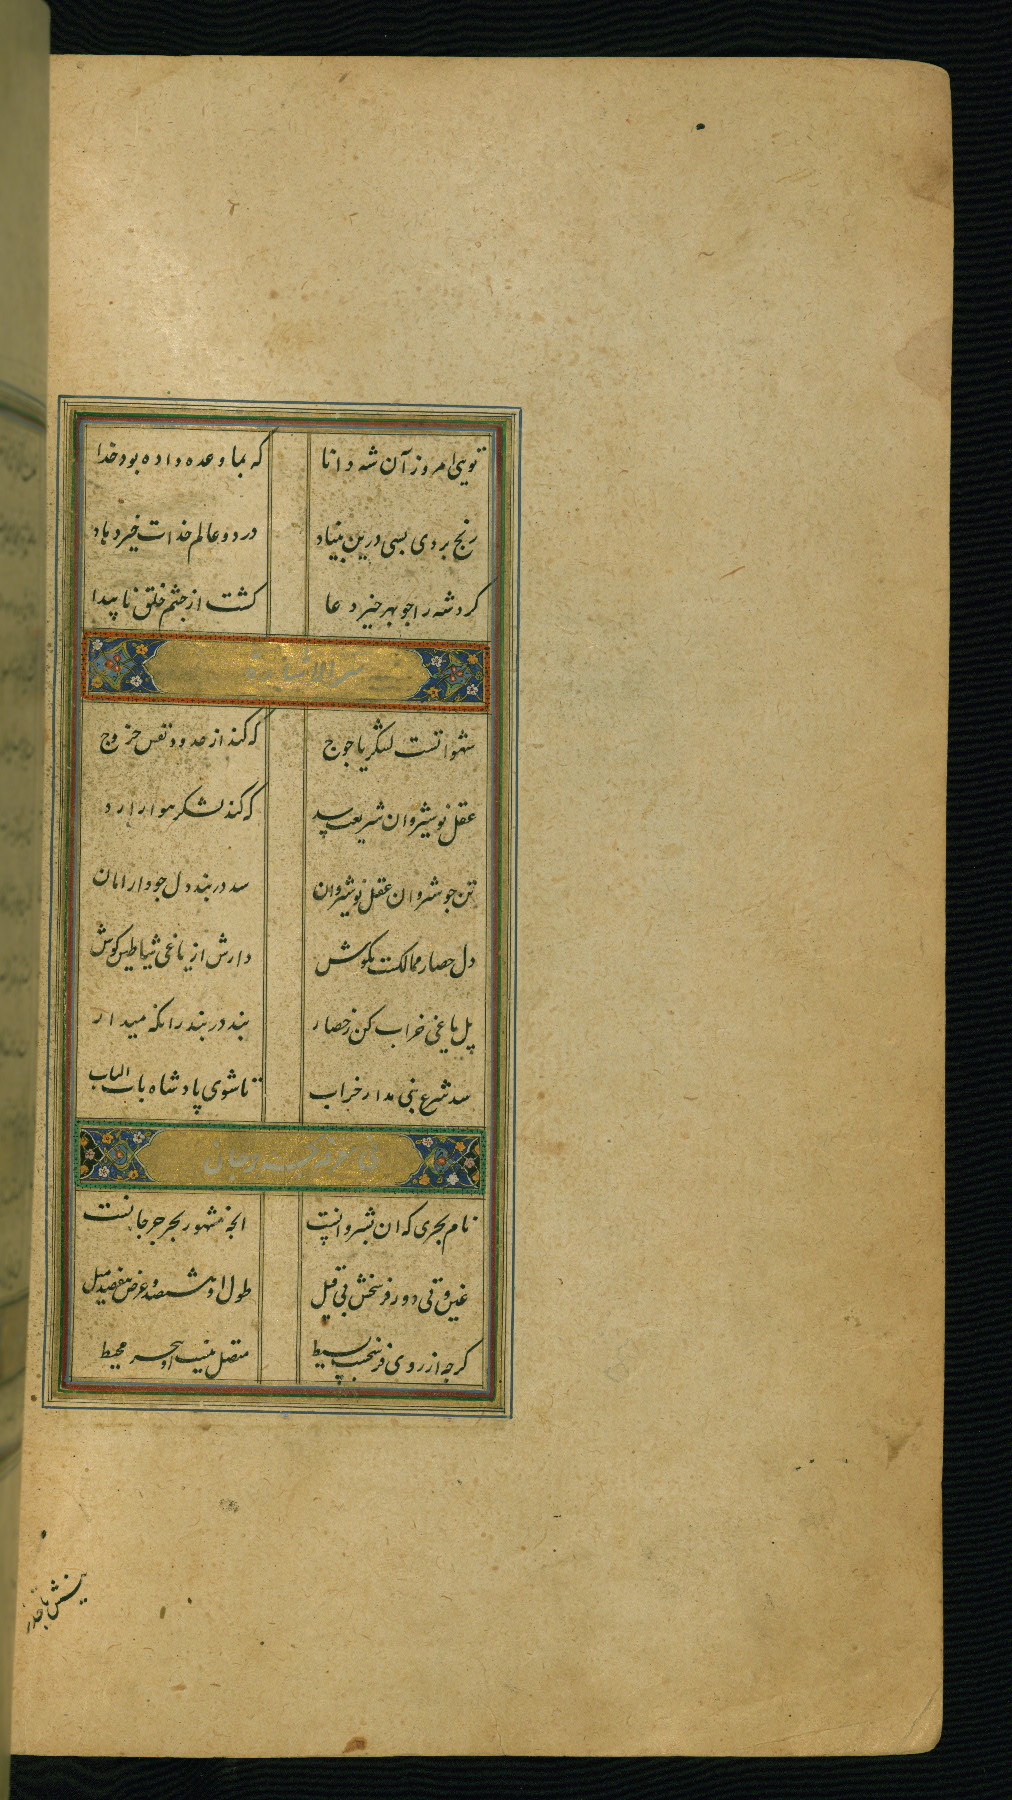 تویی امروز آن شه دانا که بما وعده داده بود خدا
رنج بردی بسی درین بنیاد در دو عالم خدات خیر دهاد
کرد شه را چو بهر خیر دعا کشت از چشم خلق نا پیدا
سر الاشارة
شهواتست لشکر یاجوج که کند از حدود نفس خروج
عقل نوشیروان شریعت سد که کند لشکر هوا را رد
تن چو شروان عقل نوشیروان سد دربند دل چو دار امان
دل حصار ممالکت بکوش دارش از یاغی شیاطین کوش
پل یاغی خراب کن ز حصار بند دربند را نکه میدار
سد شرع نبی مدار خراب تا شوی پادشاه باب الباب
فی
نام بحری که ان بشروانست انچه مشهور بحر جرجانست
طول او هشتصد و عرض ششصد میل
کرچه از روی فرسخست بسیط متصل نیست او ببحر محیط